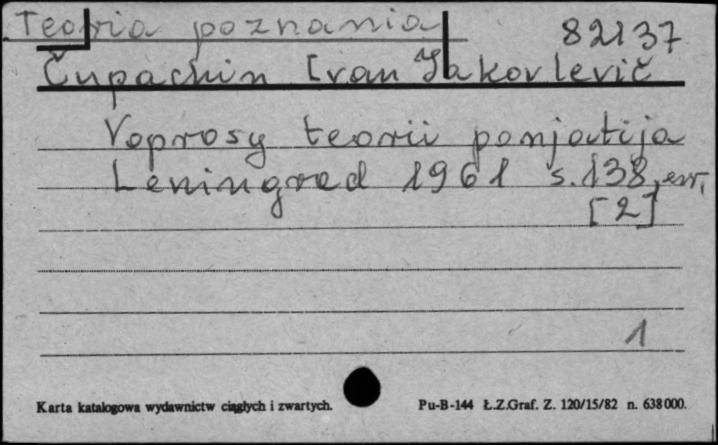 Teoria poznania 82137
Čupachin Ivan Jakovlevič
Voprosy teorii ponjatija
Leningrad 1961 s. 138,
[2]
1
Karta katalogowa wydawnictw ciągłych i zwartych. Pu-B-144 Ł.Z.Graf. Z. 120/15/82 n. 638 000.